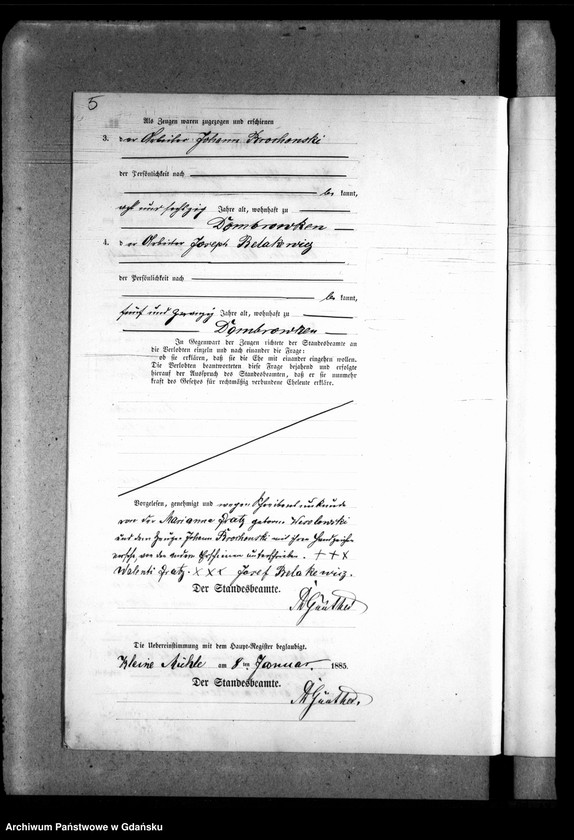 5
Als Zeugen waren zugezogen und erschienen
3. der Arbeiter Johann Krochenski
der Persönlichkeit nach
be kannt,
acht und sechzig Jahre alt, wohnhaft zu
Dombrowken
4. der Arbeiter Joseph Belakewicz
der Persönlichkeit nach
be kannt,
fünf und zwanzig Jahre alt, wohnhaft zu
Dombrowken
In Gegenwart der Zeugen richtete der Standesbeamte an
die Verlobten einzeln und nach einander die Frage:
ob sie erklären, daß sie die Ehe mit einander eingehen wollen.
Die Verlobten beantworteten diese Frage bejahend und erfolgte
hierauf der Ausspruch des Standesbeamten, daß er sie nunmehr
kraft des Gesetzes für rechtmäßig verbundene Eheleute erkläre.
Vorgelesen, genehmigt und wegen Schreibensunkunde
von der Marianna Gratz geborne
und dem Zeugen Johann Krochenski mit ihren Handzeichen
versehen, von den andern Erschienenen unterschrieben. + + x
Walenti Gratz. x x x Josef Belakewicz.
Der Standesbeamte.
Günther
Die Uebereinstimmung mit dem Haupt-Register beglaubigt.
Kleine Mühle am 8 ten Januar 1885.
Der Standesbeamte.
Günther.
Archiwum Państwowe w Gdańsku